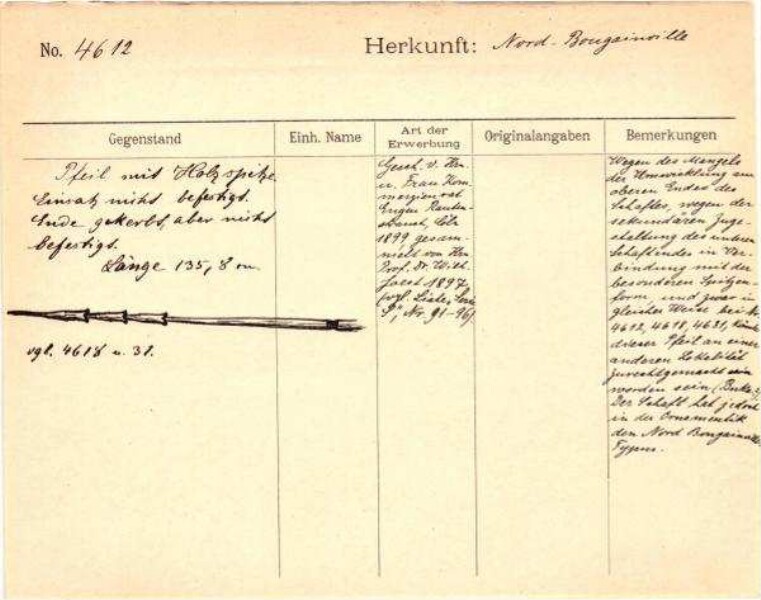 No. 4612
Herkunft: Nord-Bougainville
Gegenstand
Einh. Name
Art der Erwerbung
Originalangaben
Bemerkungen
Pfeil mit Holzspitze
Einsatz nicht befestigt.
Ende gekerbt, aber nicht
befestigt.
Länge 135,8 cm.
vgl. 4618 u. 31.
Gesch. v. Hn.
u. Frau Kom-
merzienrat
Eugen Rauten-
strauch, Cöln
1899 gesam-
melt von Hn
Prof. Dr. Wilh.
Joest 1897
(vgl. Liste, Serie
Nr. 91-96)
Wegen des Mangels
der Umwicklung am
oberen Endes des
Schaftes, wegen der
sekundären Zuge-
staltung des unteren
Schaftendes in Ver-
bindung mit der
besonderen Spitzen-
form, und zwar in
gleicher Weise bei Nr.
4612, 4618, 4631, könnte
dieser Pfeil an einer
anderen Lokalität
zurechtgemacht sein
worden sein (Buka?)
Der Schaft hat jedoch
in der Ornamentik
den Nord Bougainville
Typus.